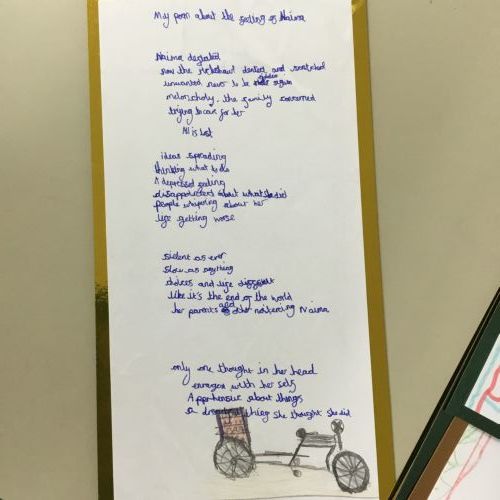 My poem about the feeling of Naima
Naima deflated
now the rickshaw dented and scratched
unwanted never to be ridden again
melancholy. the family concerned
trying to care for her
All is lost
ideas spreading
thinking what to do
A depressed feeling
disappointed about what she did
people whispering about her
life getting worse
sielent as ever
slow as anything
choices and life diffrent
like it's the end of the world
her parents and other noticeing Naima
only one thought in her head
enragen with her self
Apprhensive about things
a dreadful thing she thought she did